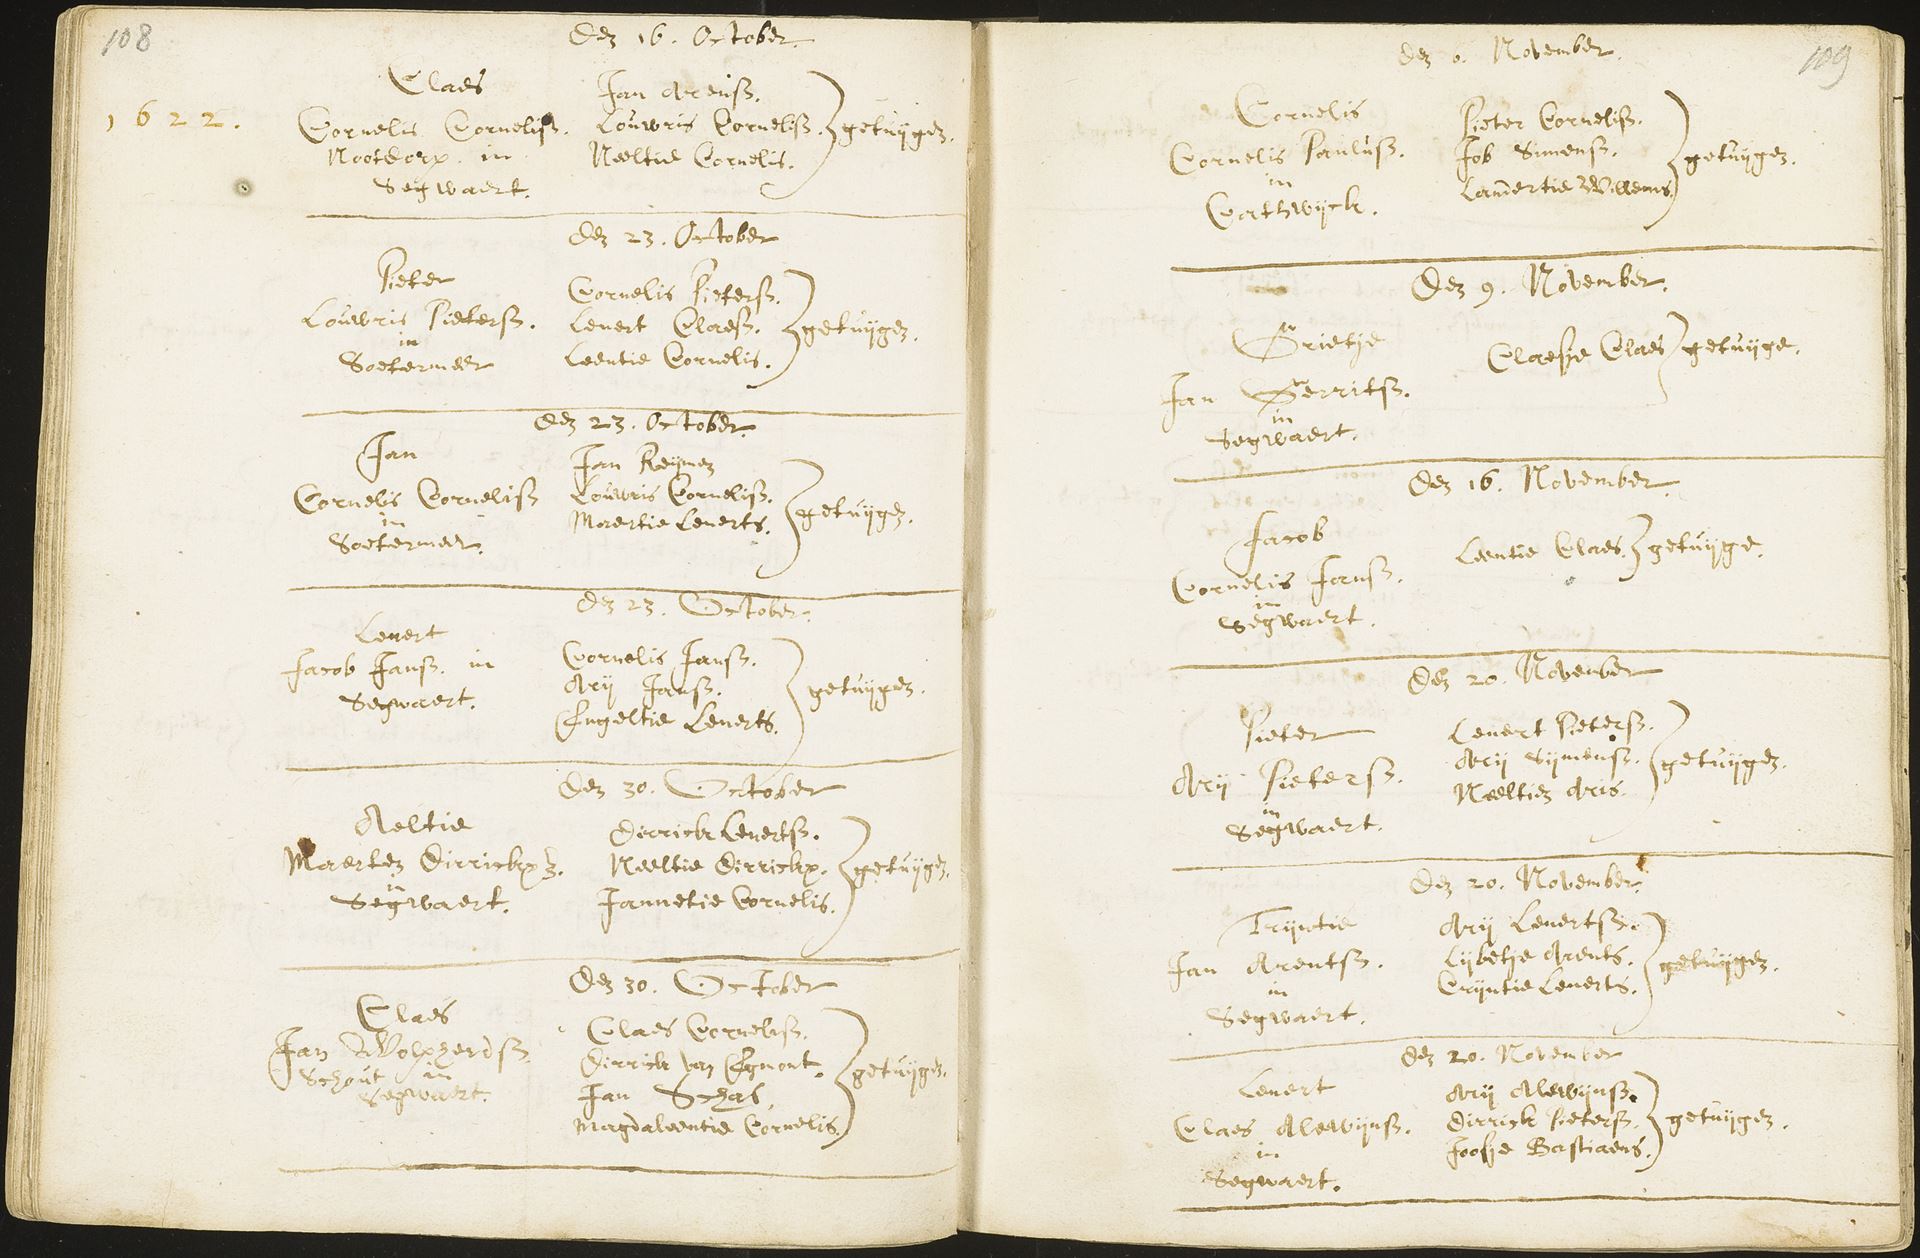 108
1622.
Den 16. October.
Claes
Cornelis Cornelisz.
Nootdorp. in
Segwaert.
Jan Arensz.
Louwris Cornelisz.
Neeltie Cornelis.
getuijgen.
Den 23. October
Pieter
Louwris Pietersz.
in
Soetermeer
Cornelis Pietersz.
Lenert Claesz.
Leentie Cornelis.
getuijgen.
Den 23. October.
Jan
Cornelis Cornelisz
in
Soetermeer.
Jan Reijmen
Louwris Cornelisz.
Maertie Lenerts.
getuijgen.
Den 23. October.
Lenert
Jacob Jansz. in
Segwaert.
Cornelis Jansz.
Arij Jansz.
Engeltie Lenerts.
getuijgen.
Den 30. October
Aeltie
Maerten Dirrickxz.
in
Segwaert.
Dirrick Lenertsz.
Neeltie Dirrickx.
Jannetie Cornelis.
getuijgen.
Den 30. October
Claes
Jan
Schout in
Segwaert.
Claes Cornelisz.
Dirrick van Egmont.
Jan
Magdaleentie Cornelis.
getuijgen.
109
Den 6. November.
Cornelis
Cornelis Paulusz.
in
Catswijck.
Pieter Cornelisz.
Job Simensz.
Lamertie Willems.
getuijgen.
Den 9. November.
Grietje
Jan Gerritsz.
in
Segwaert.
Claesje Claes
getuijge.
Den 16. November.
Jacob
Cornelis Jansz.
in
Segwaert.
Leentie Claes.
getuijge.
Den 20. November
Pieter
Arij Pietersz.
in
Segwaert.
Lenert Pietersz.
Arij Sijmensz.
Neeltien Aris.
getuijgen.
Den 20. November.
Trijntie
Jan Arentsz.
in
Segwaert.
Arij Lenertsz.
Lijbetje Arents.
Crijntie Lenerts.
getuijgen.
Den 20. November
Lenert
Claes Alewijnsz.
in
Segwaert.
Arij Alewijnsz.
Dirrick Pietersz.
Joosje Bastiaens.
getuijgen.